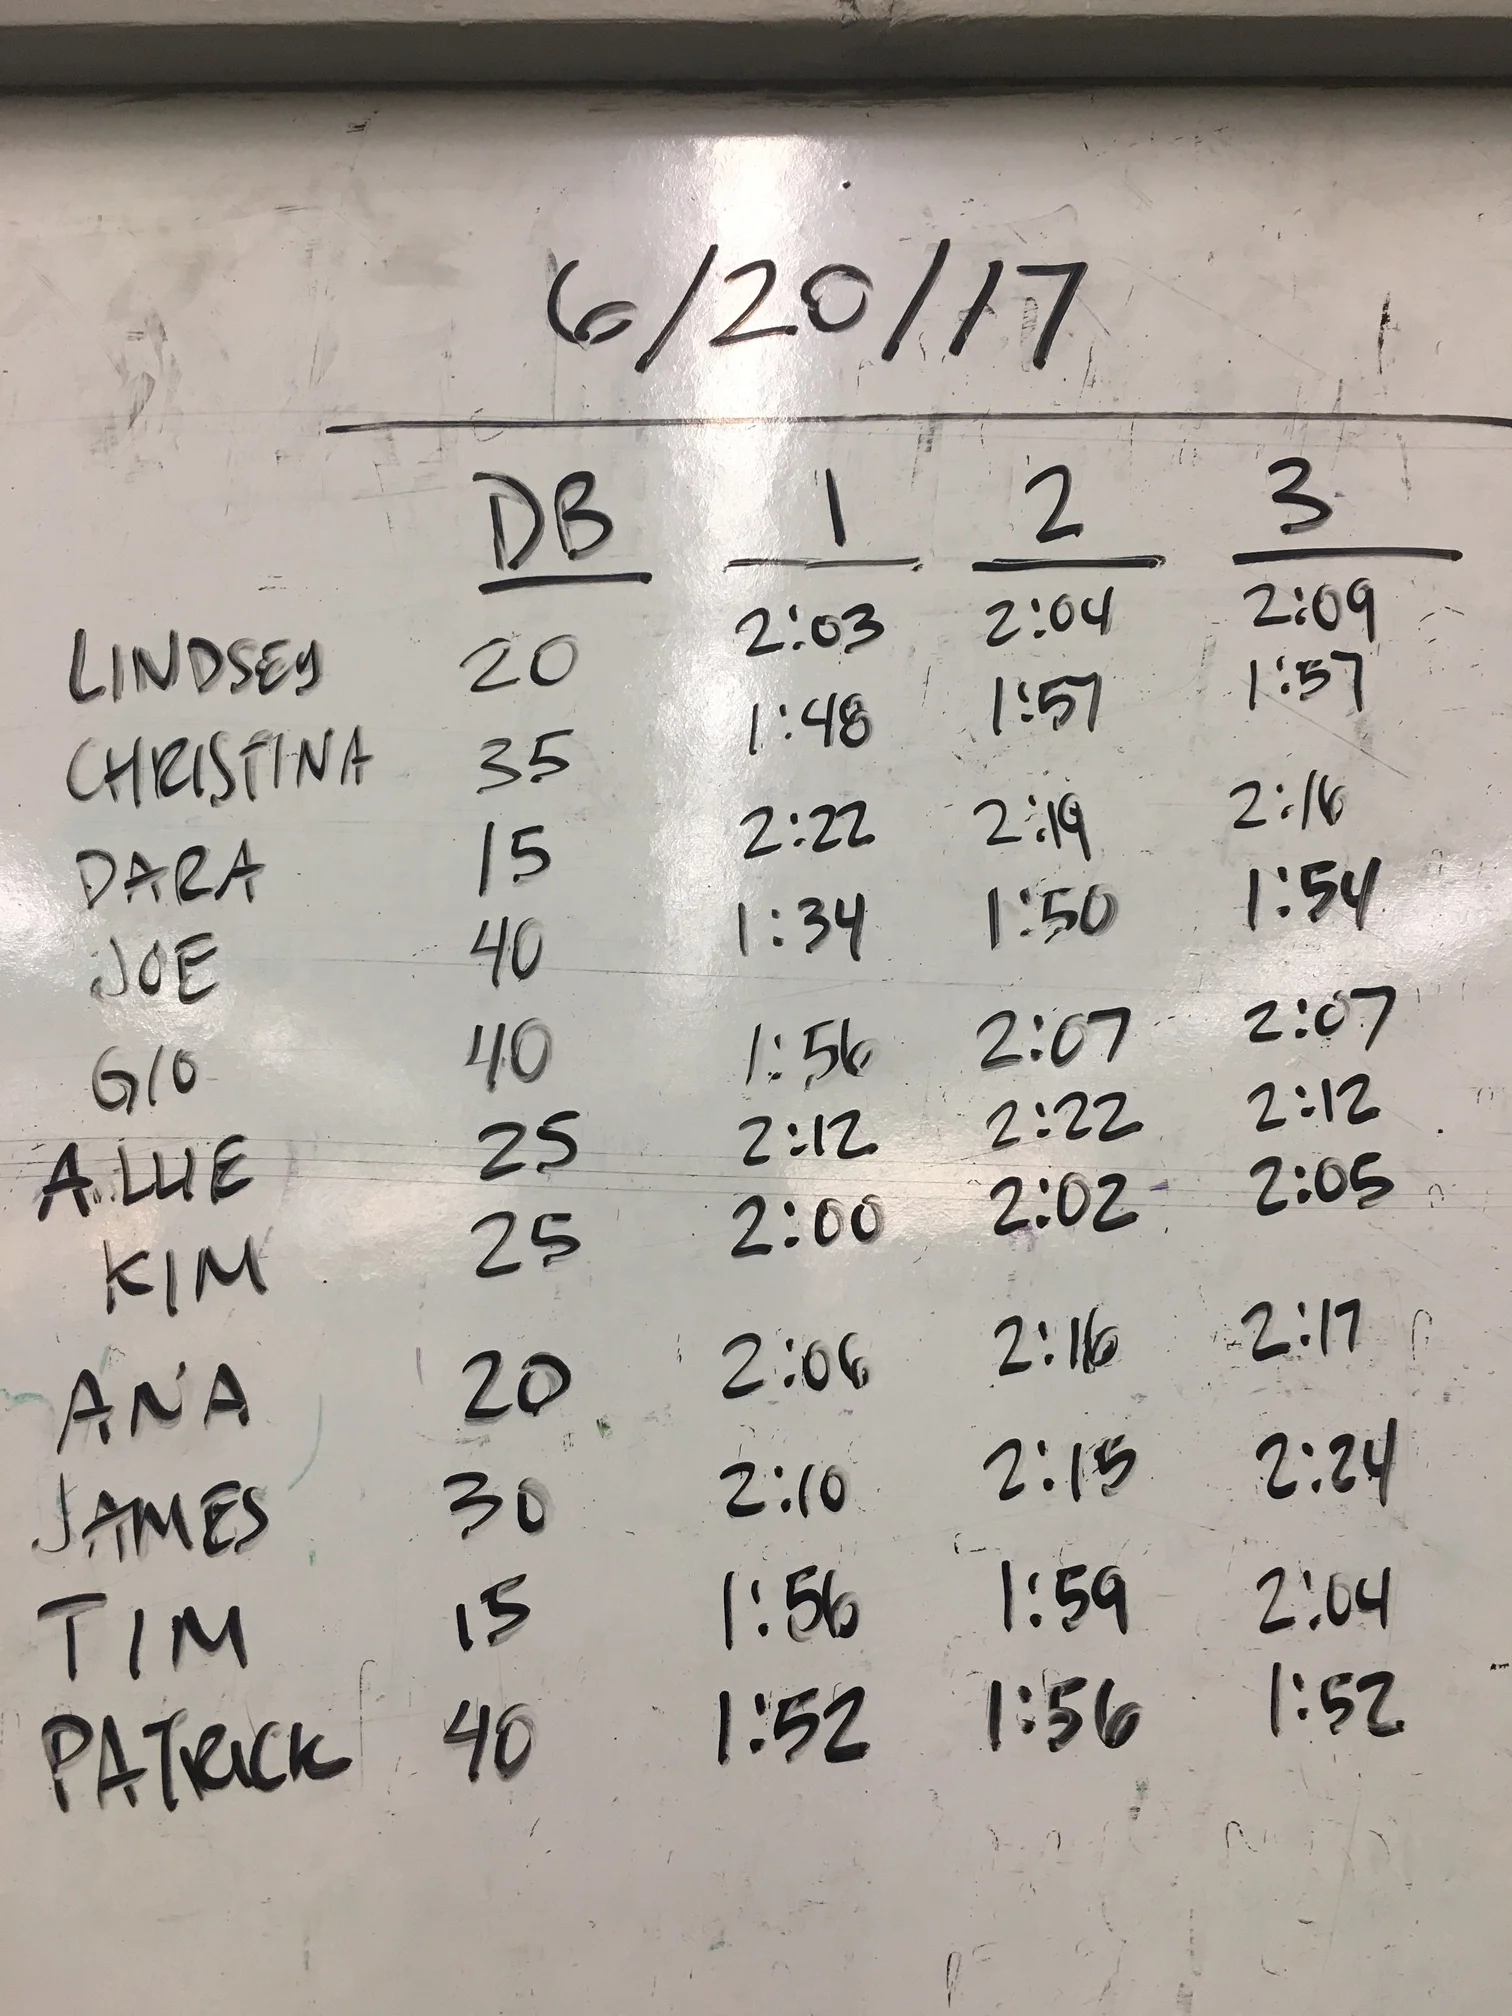 6/20/17
DB 1 2 3
LINDSEY 20 2:03 2:04 2:09
CHRISTINA 35 1:48 1:57 1:57
DARA 15 2:22 2:19 2:16
JOE 40 1:34 1:50 1:54
GIO 40 1:56 2:07 2:07
ALLIE 25 2:12 2:22 2:12
KIM 25 2:00 2:02 2:05
ANA 20 2:06 2:16 2:17
JAMES 30 2:10 2:15 2:24
TIM 15 1:56 1:59 2:04
PATRICK 40 1:52 1:56 1:52